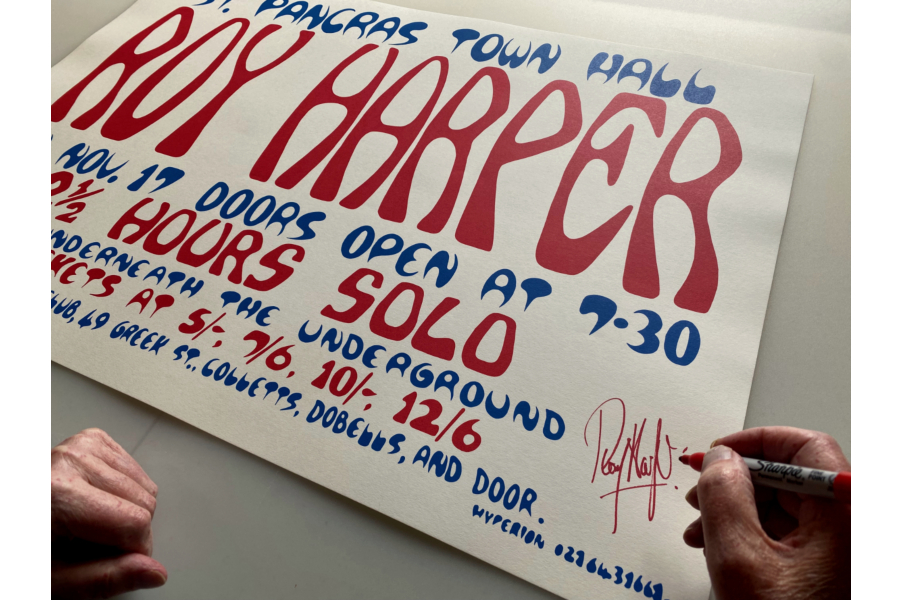 ST. PANCRAS TOWN HALL
ROY HARPER
NOV. 17 DOORS OPEN AT 7·30
2½ HOURS SOLO
UNDERNEATH THE UNDERGROUND
KETS AT 5/-, 7/6, 10/-, 12/6
LUB, 49 GREEK ST., COLLETTS, DOBELLS, AND DOOR.
HYPERION
Roy Harper
Sharpie